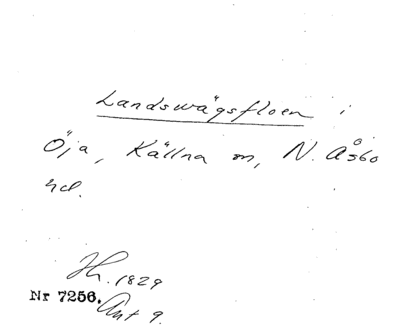 Landswägsfloen i
Öja, Källna sn, N. Åsbo
hd.
Hh. 1829
Nr 7256. Ant 9.